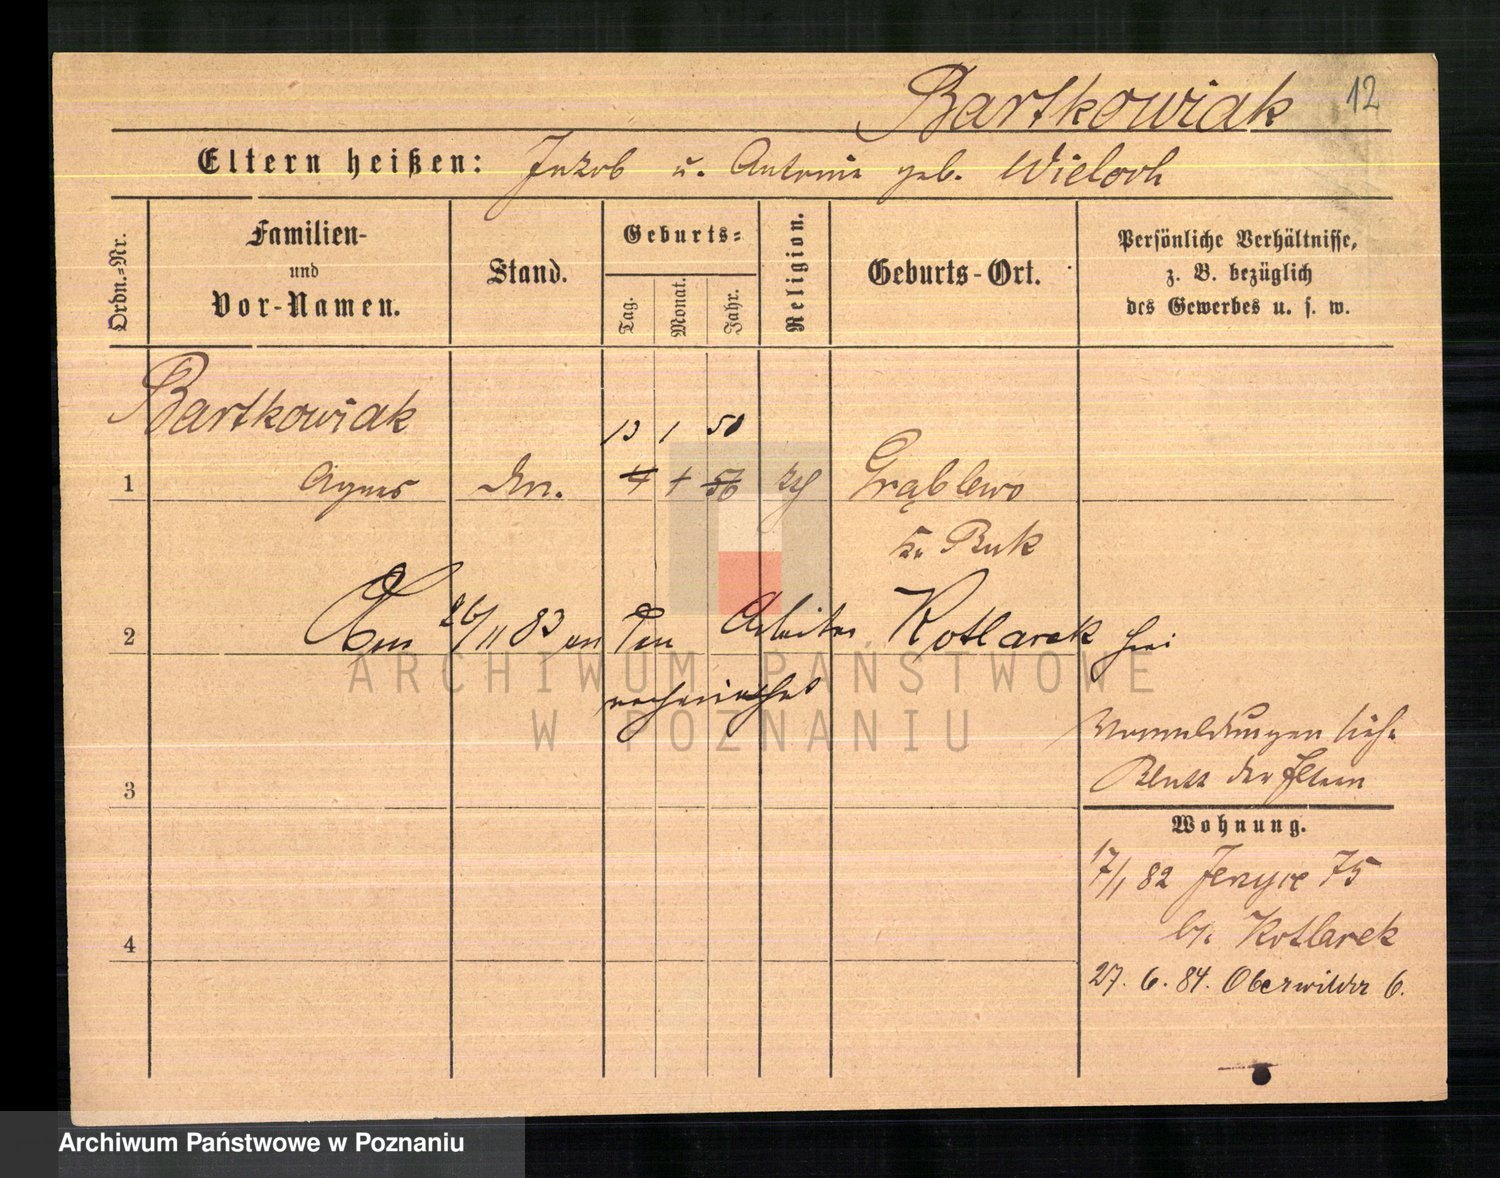 Bartkowiak 12
Eltern heißen: Jakob u. Antonie geb. Wieloch
Ordn.-Nr.
Familien-
und
Vor-Namen.
Stand.
Geburts-
Tag.
Monat.
Jahr.
Religion.
Geburts-Ort.
Persönliche Verhältnisse,
z. B. bezüglich
des Gewerbes u. s. w.
Bartkowiak 13 1 50
1 Agnes 4 1 56 Grąblewo
Kr. Buk
2 26/11 83 an den Arbeiter Kotlarek
verheirathet
ARCHIWUM PAŃSTWOWE
W POZNANIU
siehe
3 Blatt der Eltern
Wohnung.
17/1 82 Jerzyce 75
4 b/. Kotlarek
27. 6. 84. Oberwilda 6.
Archiwum Państwowe w Poznaniu